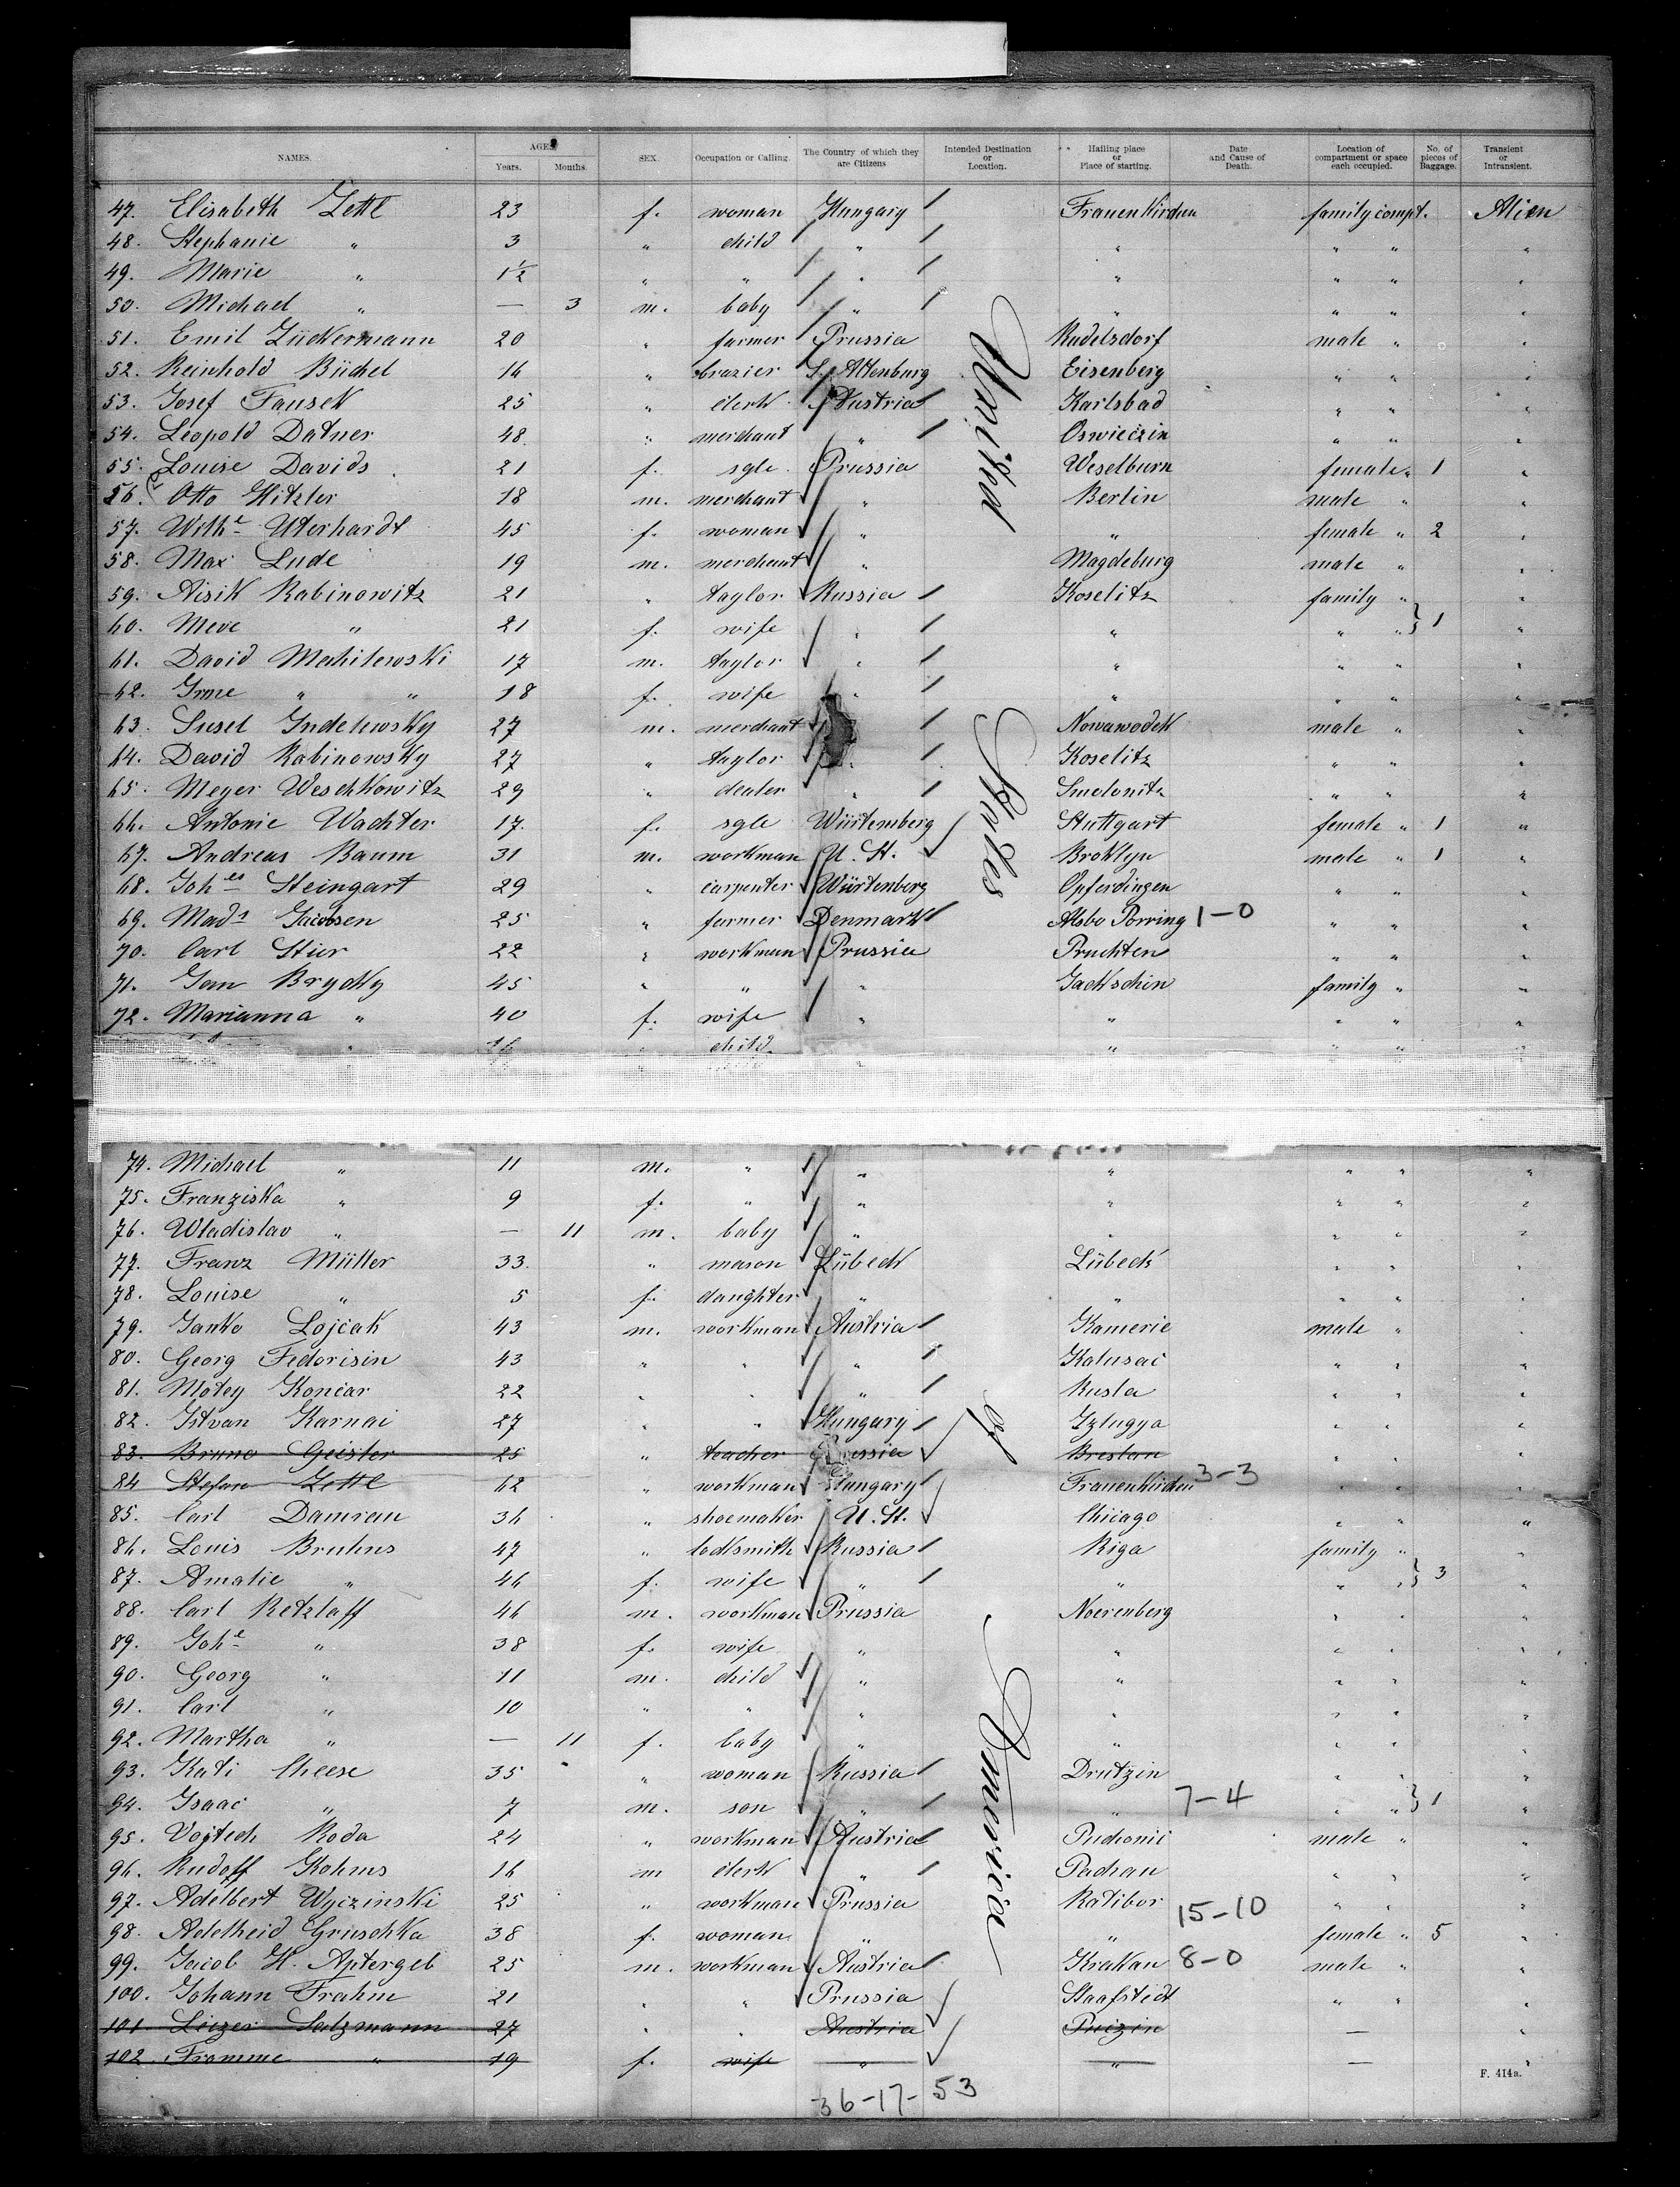 NAMES. AGE. Years. Months. SEX. Occupation or Calling. The Country of which they are Citizens Intended Destination or Location. Hailing place or Place of starting. Date and Cause of Death. Location of compartment or space each occupied. No. of pieces of Baggage. Transient or Intransient.
47. Elisabeth Zettl 23 f. woman Hungary Frauenkirchen family compt. Alien
48. Stephanie " 3 " child " " " " "
49. Marie " 1½ " " " " " " "
50. Michael " — 3 m. baby " " " " "
51. Emil Zückermann 20 " farmer Prussia Rudelsdorf male " "
52. Reinhold Büchel 16 " brazier S. Altenburg Eisenberg " " "
53. Josef Fausek 25 " clerk Austria Karlsbad " " "
54. Leopold Datner 48 " merchant " Oswieczin " " "
55. Louise Davids 21 f. sgle. Prussia Weselburn female " 1 "
56. Otto Hitzler 18 m. merchant " Berlin male " "
57. Wilhe Uterhardt 45 f. woman " " female " 2 "
58. Max Lude 19 m. merchant " Magdeburg male " "
59. Aisik Rabinowitz 21 " taylor Russia Koselitz family " "
60. Meve " 21 f. wife " " " " } 1 "
61. David Mechilewski 17 m. taylor " " " " "
62. " " 18 f. wife " " " " "
63. Susel Indelewsky 27 m. merchant Nowawodek male " "
64. David Rabinowsky 27 " taylor " Koselitz " " "
65. Meyer Weschkowitz 29 " dealer " Smelonitz " " "
66. Antonie Wachter 17. f. sgle Würtemberg Stuttgart female " 1 "
67. Andreas Baum 31 m. workman U. St. Broklyn male " 1 "
68. Johes Steingart 29 " carpenter Würtenberg Opferdingen " " "
69. Mads Jacobsen 25 " farmer Denmark Alsbo Porring 1-0 " " "
70. Carl Stier 22 " workman Prussia Pruchten " " "
71. Jan Brycky 45 " " " Jacktschin family " "
72. Marianna " 40 f. wife " " " " "
" 16 child " " " "
74. Michael " 11 m. " " " " " "
75. Franziska " 9 f. " " " " " "
76. Wladislav " — 11 m. baby " " " " "
77. Franz Müller 33. " mason Lübeck Lübeck " " "
78. Louise " 5 f. daughter " " " " "
79. Janko Lojcak 43 m. workman Austria Kamerie male " "
80. Georg Fedorisin 43 " " " Kalusai " " "
81. Motey Koncar 22 " " " Rusla " " "
82. Istvan Karnai 27 " " Hungary Izlugya " " "
83. Bruno Geisler 25 " teacher Prussia Breslau " " "
84 Stefan Zettl 62 " workman Hungary Frauenkirchen 3-3 " " "
85. Carl Damrau 36 " shoemaker U. St. Chicago " " "
86. Louis Bruhns 47 " lodlsmith Russia Riga family " "
87. Amalie " 46 f. wife " " " " } 3 "
88. Carl Retzlaff 46 m. workman Prussia Noerenberg " " "
89. Johe " 38 f. wife " " " " "
90. Georg " 11 m. child " " " " "
91. Carl " 10 " " " " " " "
92. Martha " — 11 f. baby " " " " "
93. Kati Cheese 35 " woman Russia Drutzin " " "
94. Isaac " 7 m. son " " 7-4 " " } 1 "
95. Vojtech Koda 24 " workman Austria Puchonic male " "
96. Rudolf Kohms 16 m clerk " Pachau " " "
97. Adelbert Wyczinski 25 " workman Prussia Ratibor 15-10 " " "
98. Adelheid Gruschka 38 f. woman " " female " 5 "
99. Jacob H. Aptergeb 25 m. workman Austria Krakau 8-0 male " "
100. Johann Frahm 21 " " Prussia Staafstedt " " "
101. Leizer Salzmann 27 " " Austria Puizin — "
102. Framme " 19 f. wife " " — "
United States of America
F. 414a.
36-17-53